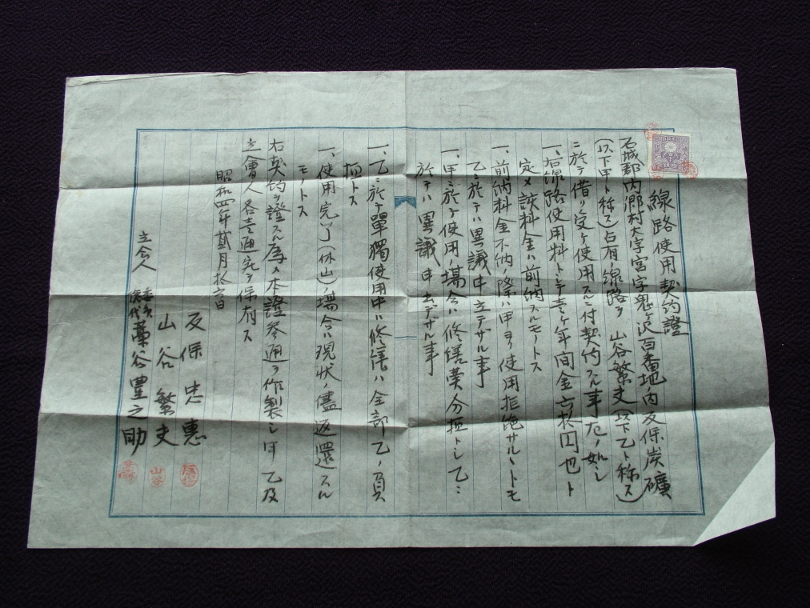 線路使用契約證
石城郡内郷村大字宮字鬼ヶ沢百番地内反保炭礦
(以下甲ト称ス)占有ノ線路ヲ山谷繁吏(以下乙ト称ス)
ニ於テ借リ受ケ使用スルニ付契約スル事左ノ如シ
一、右線路使用料トシテ壱ヶ年間金六拾円也ト
定メ該料金ハ前納スルモノトス
一、前納料金不納ノ際ハ甲ヨリ使用拒絶サルヽトモ
乙ニ於テハ異議申立テザル事
一、甲ニ於テ使用ノ場合ハ修繕費分担トシ乙ニ
於テハ異議申出デザル事
一、乙ニ於テ單獨使用中ハ修繕ハ全部乙ノ負
担トス
一、使用完了(休山)ノ場合ハ現状ノ儘返還スル
モノトス
右契約ヲ證スル為メ本證参通ヲ作製シ甲乙及
立會人各壱通宛ヲ保有ス
昭和四年貳月拾 日
反保忠惠
山谷繁吏
立会人 藁谷豊之助